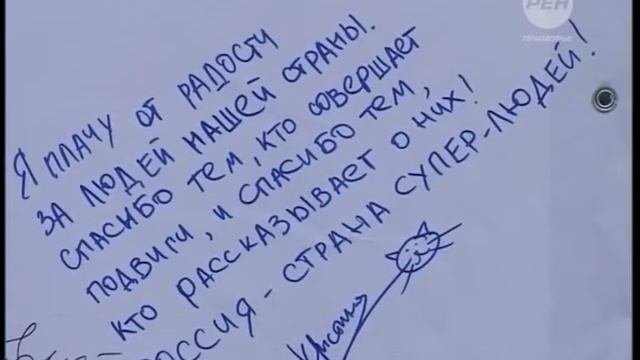 РЕН
ПРИМОРЬЕ
Я ПЛАЧУ ОТ РАДОСТИ
ЗА ЛЮДЕЙ НАШЕЙ СТРАНЫ.
СПАСИБО ТЕМ, КТО СОВЕРШАЕТ
ПОДВИГИ, И СПАСИБО ТЕМ,
КТО РАССКАЗЫВАЕТ О НИХ!
РОССИЯ - СТРАНА СУПЕР-ЛЮДЕЙ!